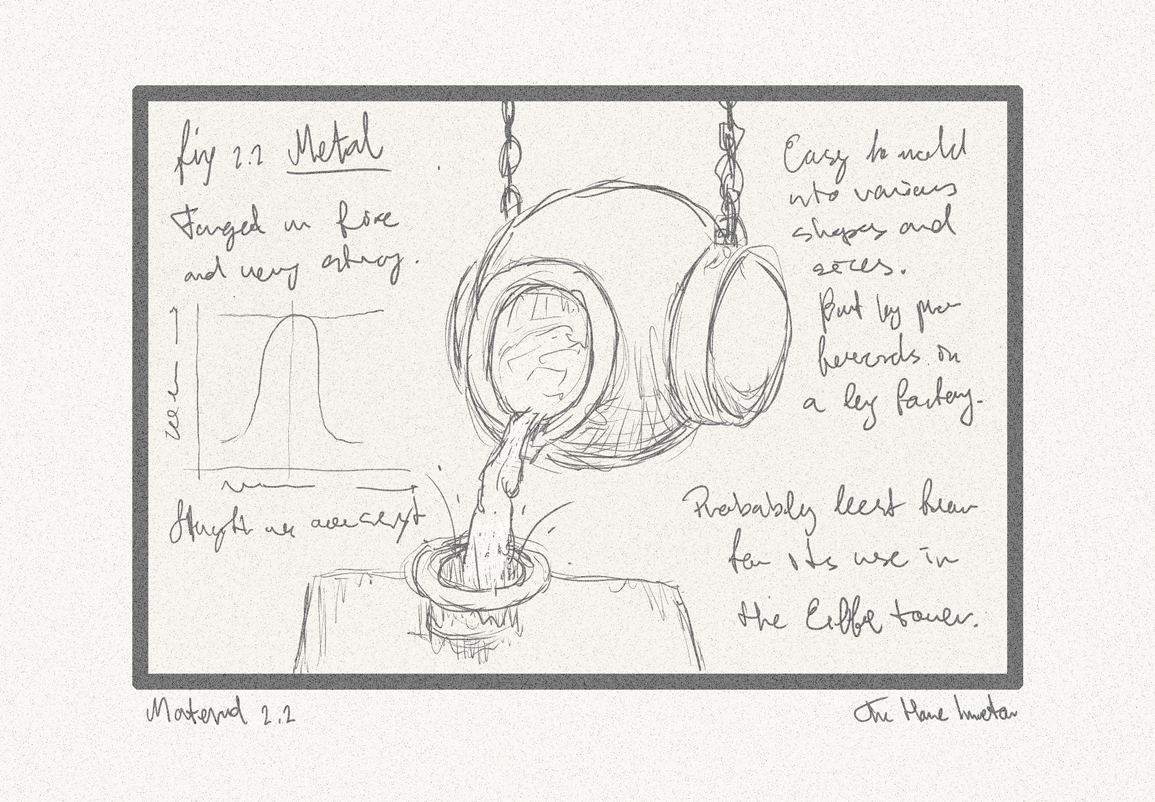 fig 2.2 Metal
Forged in fire
and very strong.
Strength
Easy to mold
into various
shapes and
sizes.
But by
records in
a big factory.
Probably best known
for its use in
the Eiffel tower.
Material 2.2
The Home Inventor